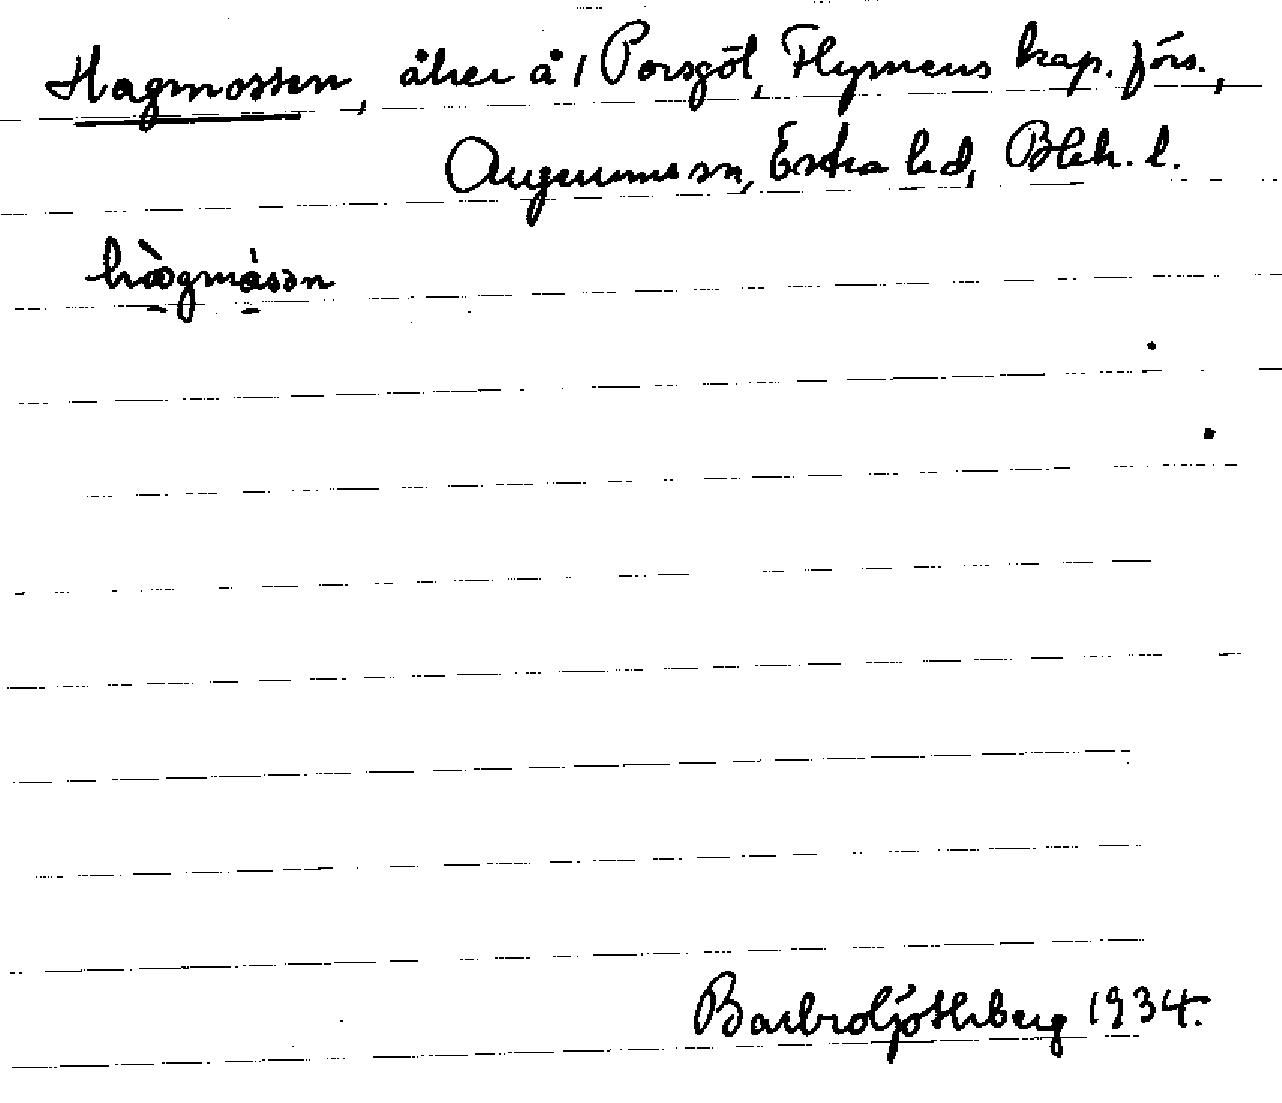 Hagmossen, åker å 1 Porsgöl, Flymens kap. förs.,
Augerums sn, Östra hd, Blek. l.
hàgmåsən
Barbro Ljöthberg 1934.